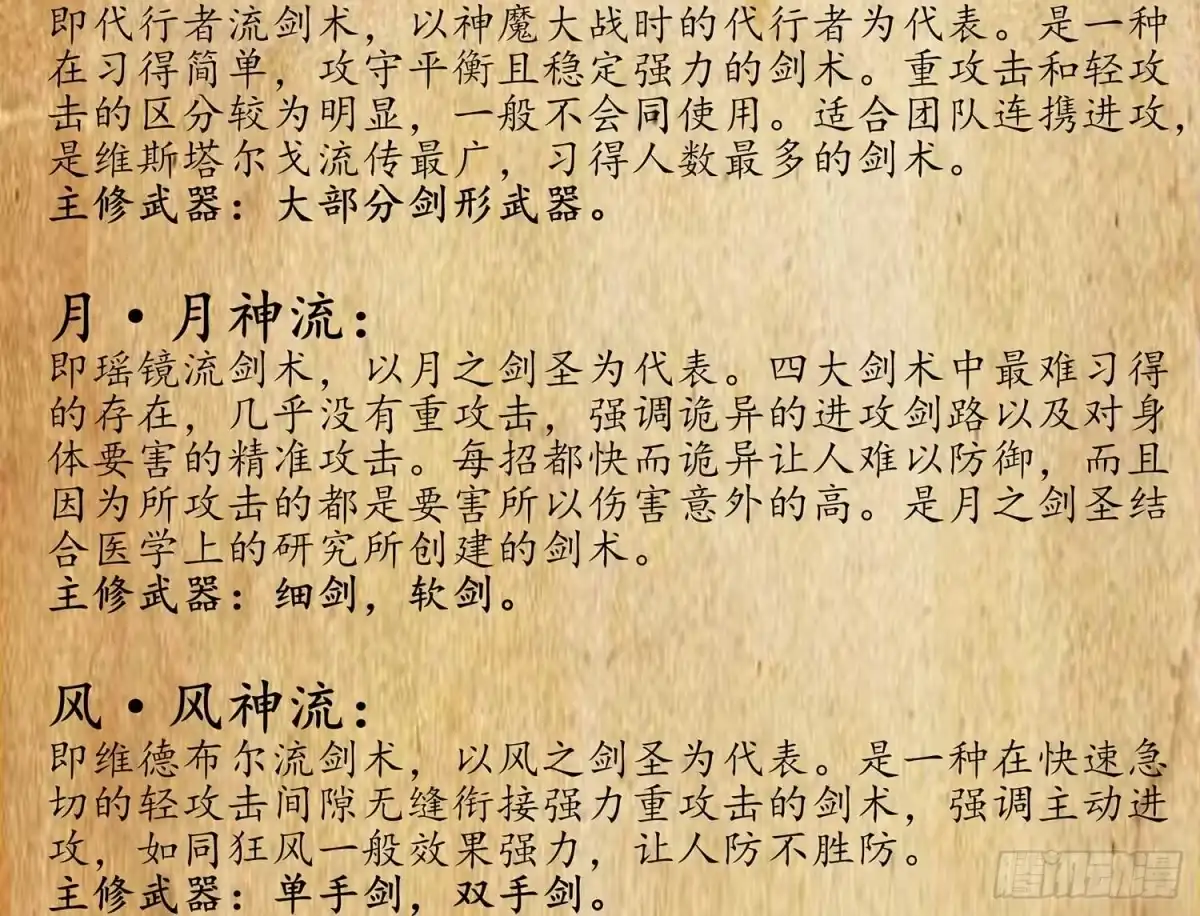 即代行者流剑术，以神魔大战时的代行者为代表。是一种
在习得简单，攻守平衡且稳定强力的剑术。重攻击和轻攻
击的区分较为明显，一般不会同使用。适合团队连携进攻，
是维斯塔尔戈流传最广，习得人数最多的剑术。
主修武器：大部分剑形武器。
月·月神流：
即瑶镜流剑术，以月之剑圣为代表。四大剑术中最难习得
的存在，几乎没有重攻击，强调诡异的进攻剑路以及对身
体要害的精准攻击。每招都快而诡异让人难以防御，而且
因为所攻击的都是要害所以伤害意外的高。是月之剑圣结
合医学上的研究所创建的剑术。
主修武器：细剑，软剑。
风·风神流：
即维德布尔流剑术，以风之剑圣为代表。是一种在快速急
切的轻攻击间隙无缝衔接强力重攻击的剑术，强调主动进
攻，如同狂风一般效果强力，让人防不胜防。
主修武器：单手剑，双手剑。
腾讯动漫